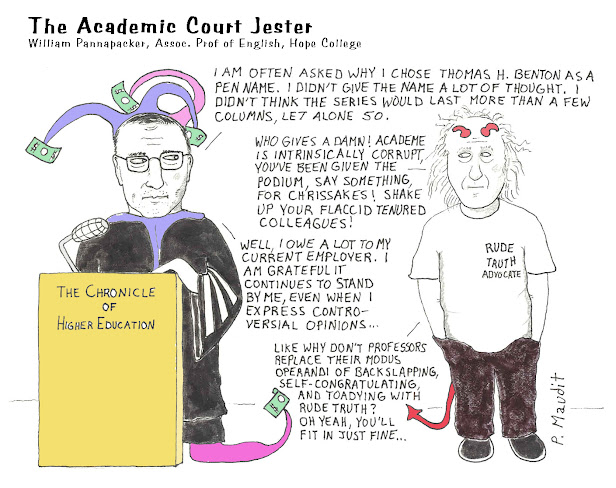 The Academic Court Jester
William Pannapacker, Assoc. Prof of English, Hope College
I AM OFTEN ASKED WHY I CHOSE THOMAS H. BENTON AS A
PEN NAME. I DIDN'T GIVE THE NAME A LOT OF THOUGHT. I
DIDN'T THINK THE SERIES WOULD LAST MORE THAN A FEW
COLUMNS, LET ALONE 50.
WHO GIVES A DAMN! ACADEME
IS INTRINSICALLY CORRUPT,
YOU'VE BEEN GIVEN THE
PODIUM, SAY SOMETHING,
FOR CHRISSAKES! SHAKE
UP YOUR FLACCID TENURED
COLLEAGUES!
WELL, I OWE A LOT TO MY
CURRENT EMPLOYER. I
AM GRATEFUL IT
CONTINUES TO STAND
BY ME, EVEN WHEN I
EXPRESS CONTRO-
VERSIAL OPINIONS...
LIKE WHY DON'T PROFESSORS
REPLACE THEIR MODUS
OPERANDI OF BACKSLAPPING,
SELF-CONGRATULATING,
AND TOADYING WITH
RUDE TRUTH?
OH YEAH, YOU'LL
FIT IN JUST FINE...
THE CHRONICLE
OF
HIGHER EDUCATION
RUDE
TRUTH
ADVOCATE
P. Maudit
$ $
$ $
$ $
$ $